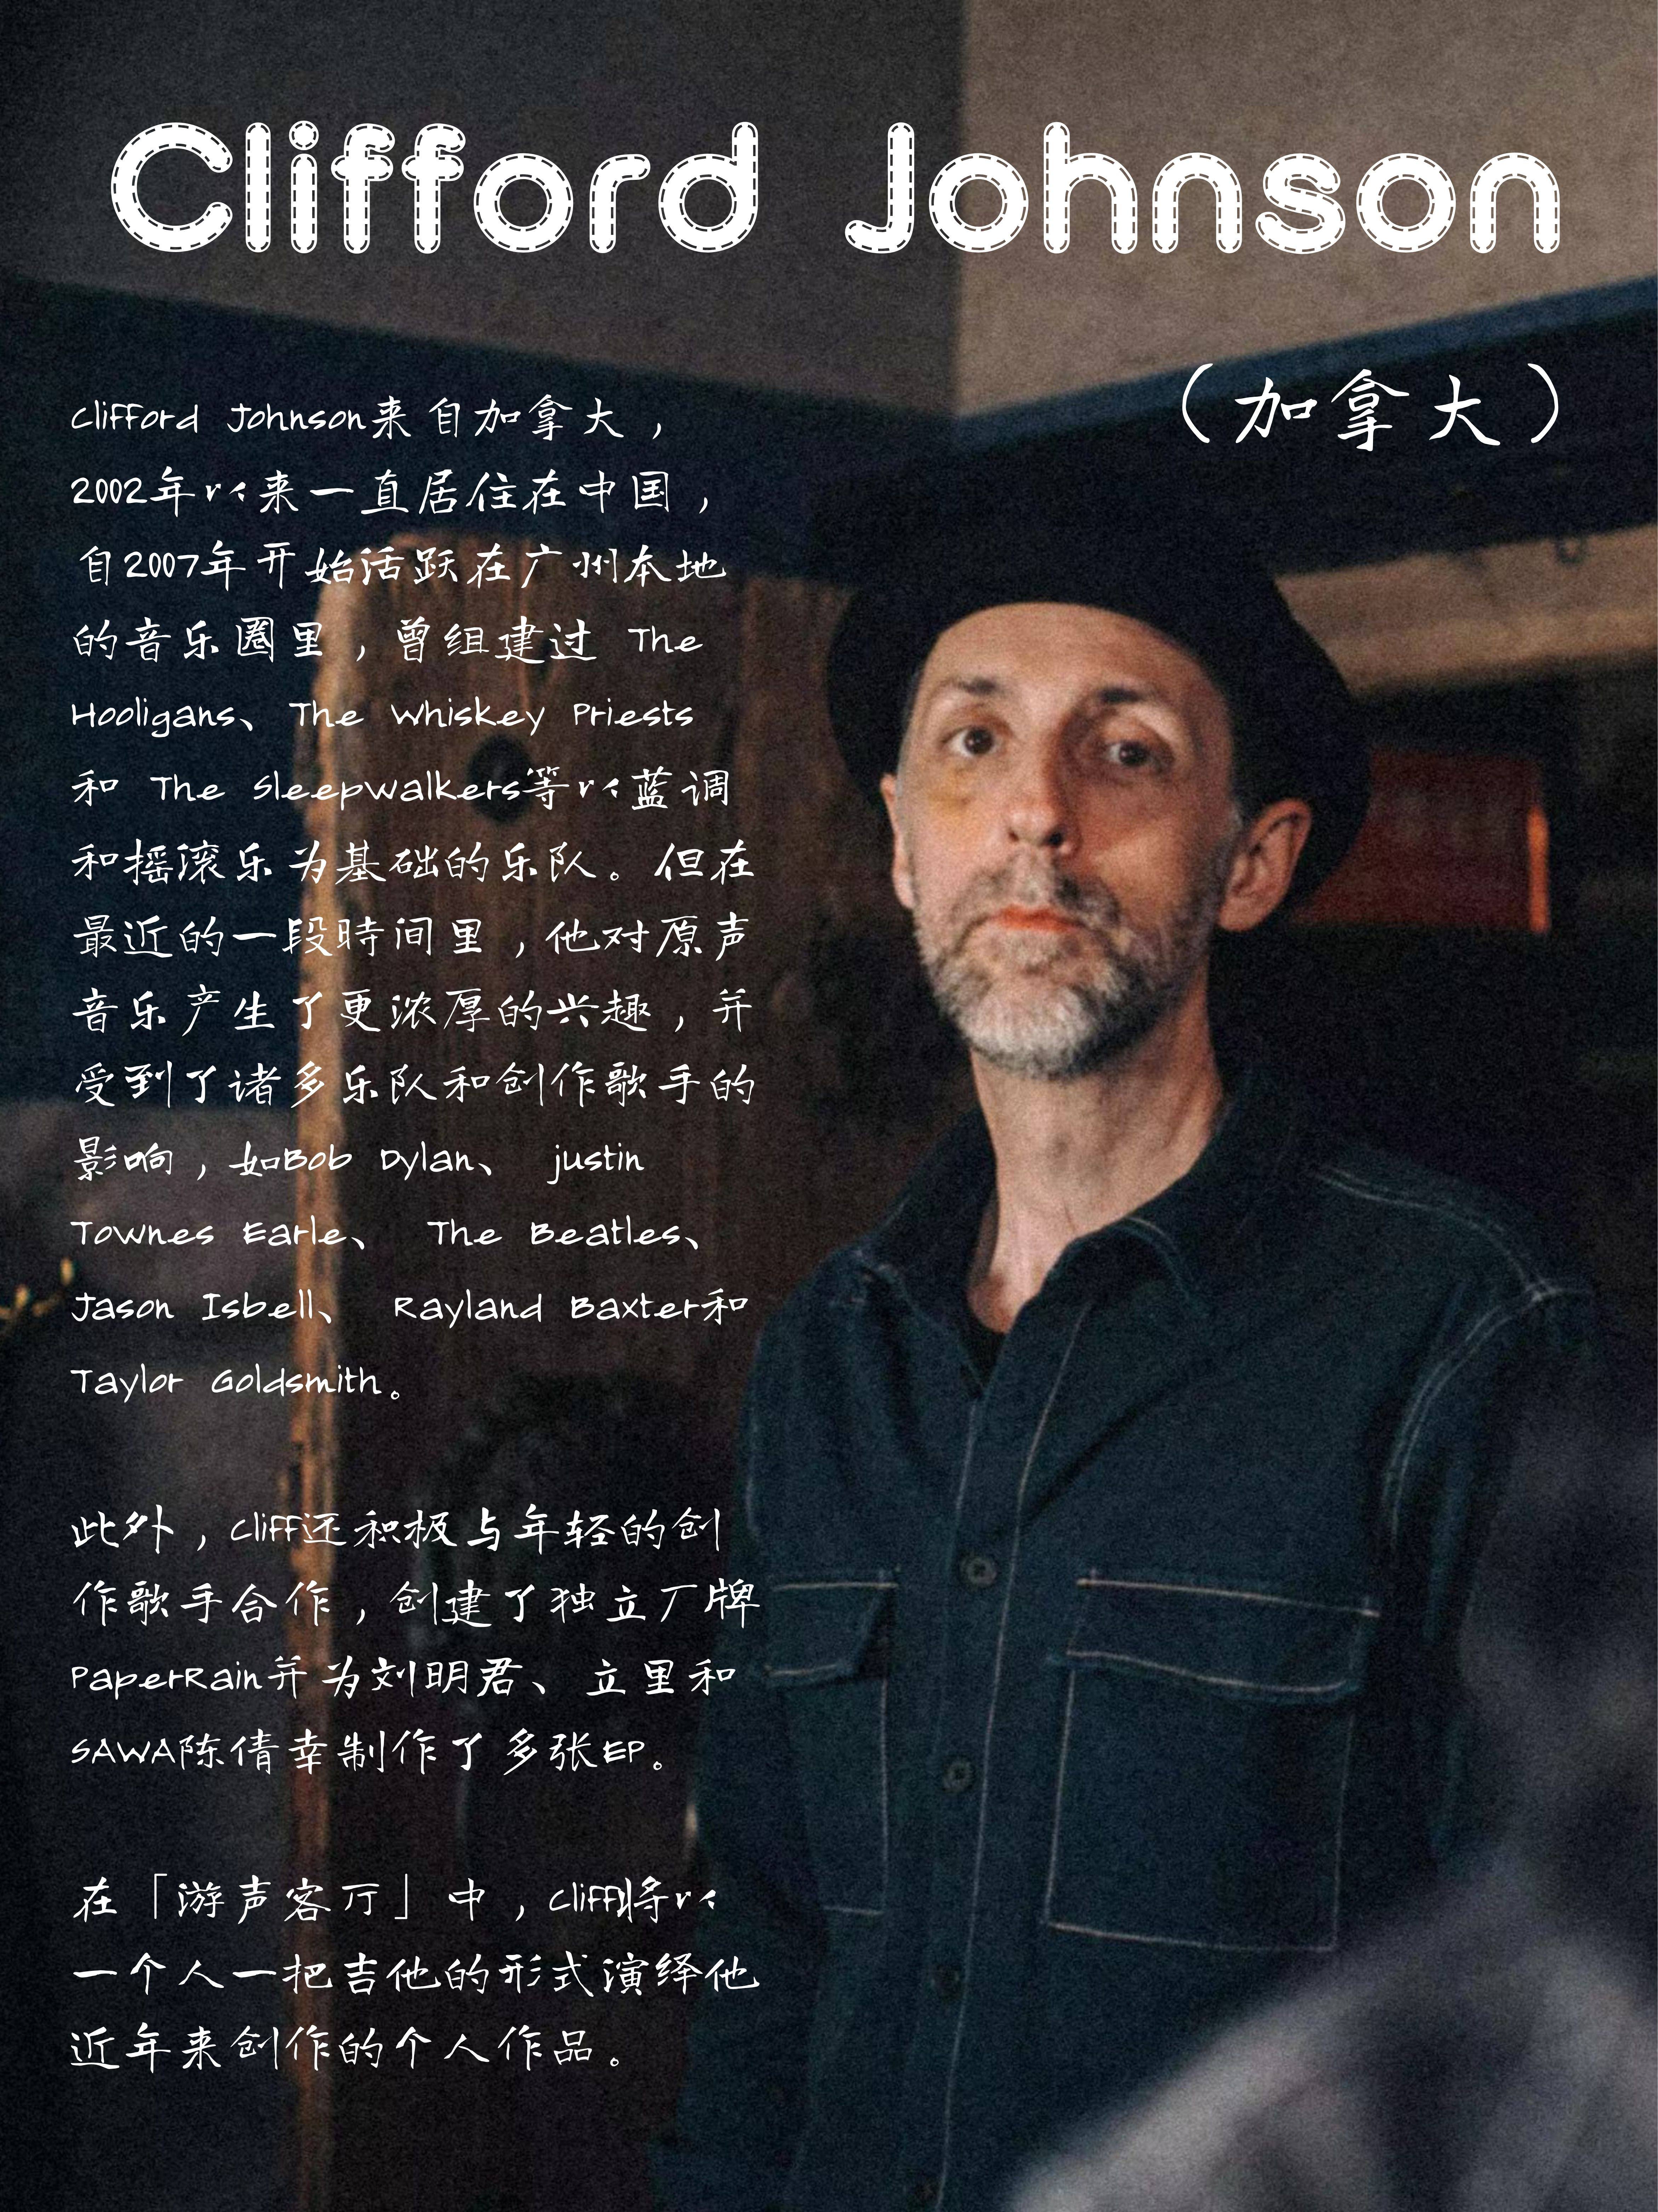 Clifford Johnson
（加拿大）
Clifford Johnson来自加拿大，
2002年以来一直居住在中国，
自2007年开始活跃在广州本地
的音乐圈里，曾组建过 The
Hooligans、The Whiskey Priests
和 The Sleepwalkers等以蓝调
和摇滚乐为基础的乐队。但在
最近的一段時间里，他对原声
音乐产生了更浓厚的兴趣，并
受到了诸多乐队和创作歌手的
影响，如Bob Dylan、 justin
Townes Earle、 The Beatles、
Jason Isbell、 Rayland Baxter和
Taylor Goldsmith。
此外，Cliff还积极与年轻的创
作歌手合作，创建了独立厂牌
PaperRain并为刘明君、立里和
SAWA陈倩幸制作了多张EP。
在「游声客厅」中，Cliff将以
一个人一把吉他的形式演绎他
近年来创作的个人作品。